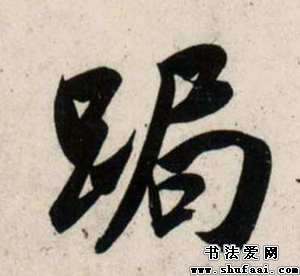 跼
书法爱网
www.shufaai.com